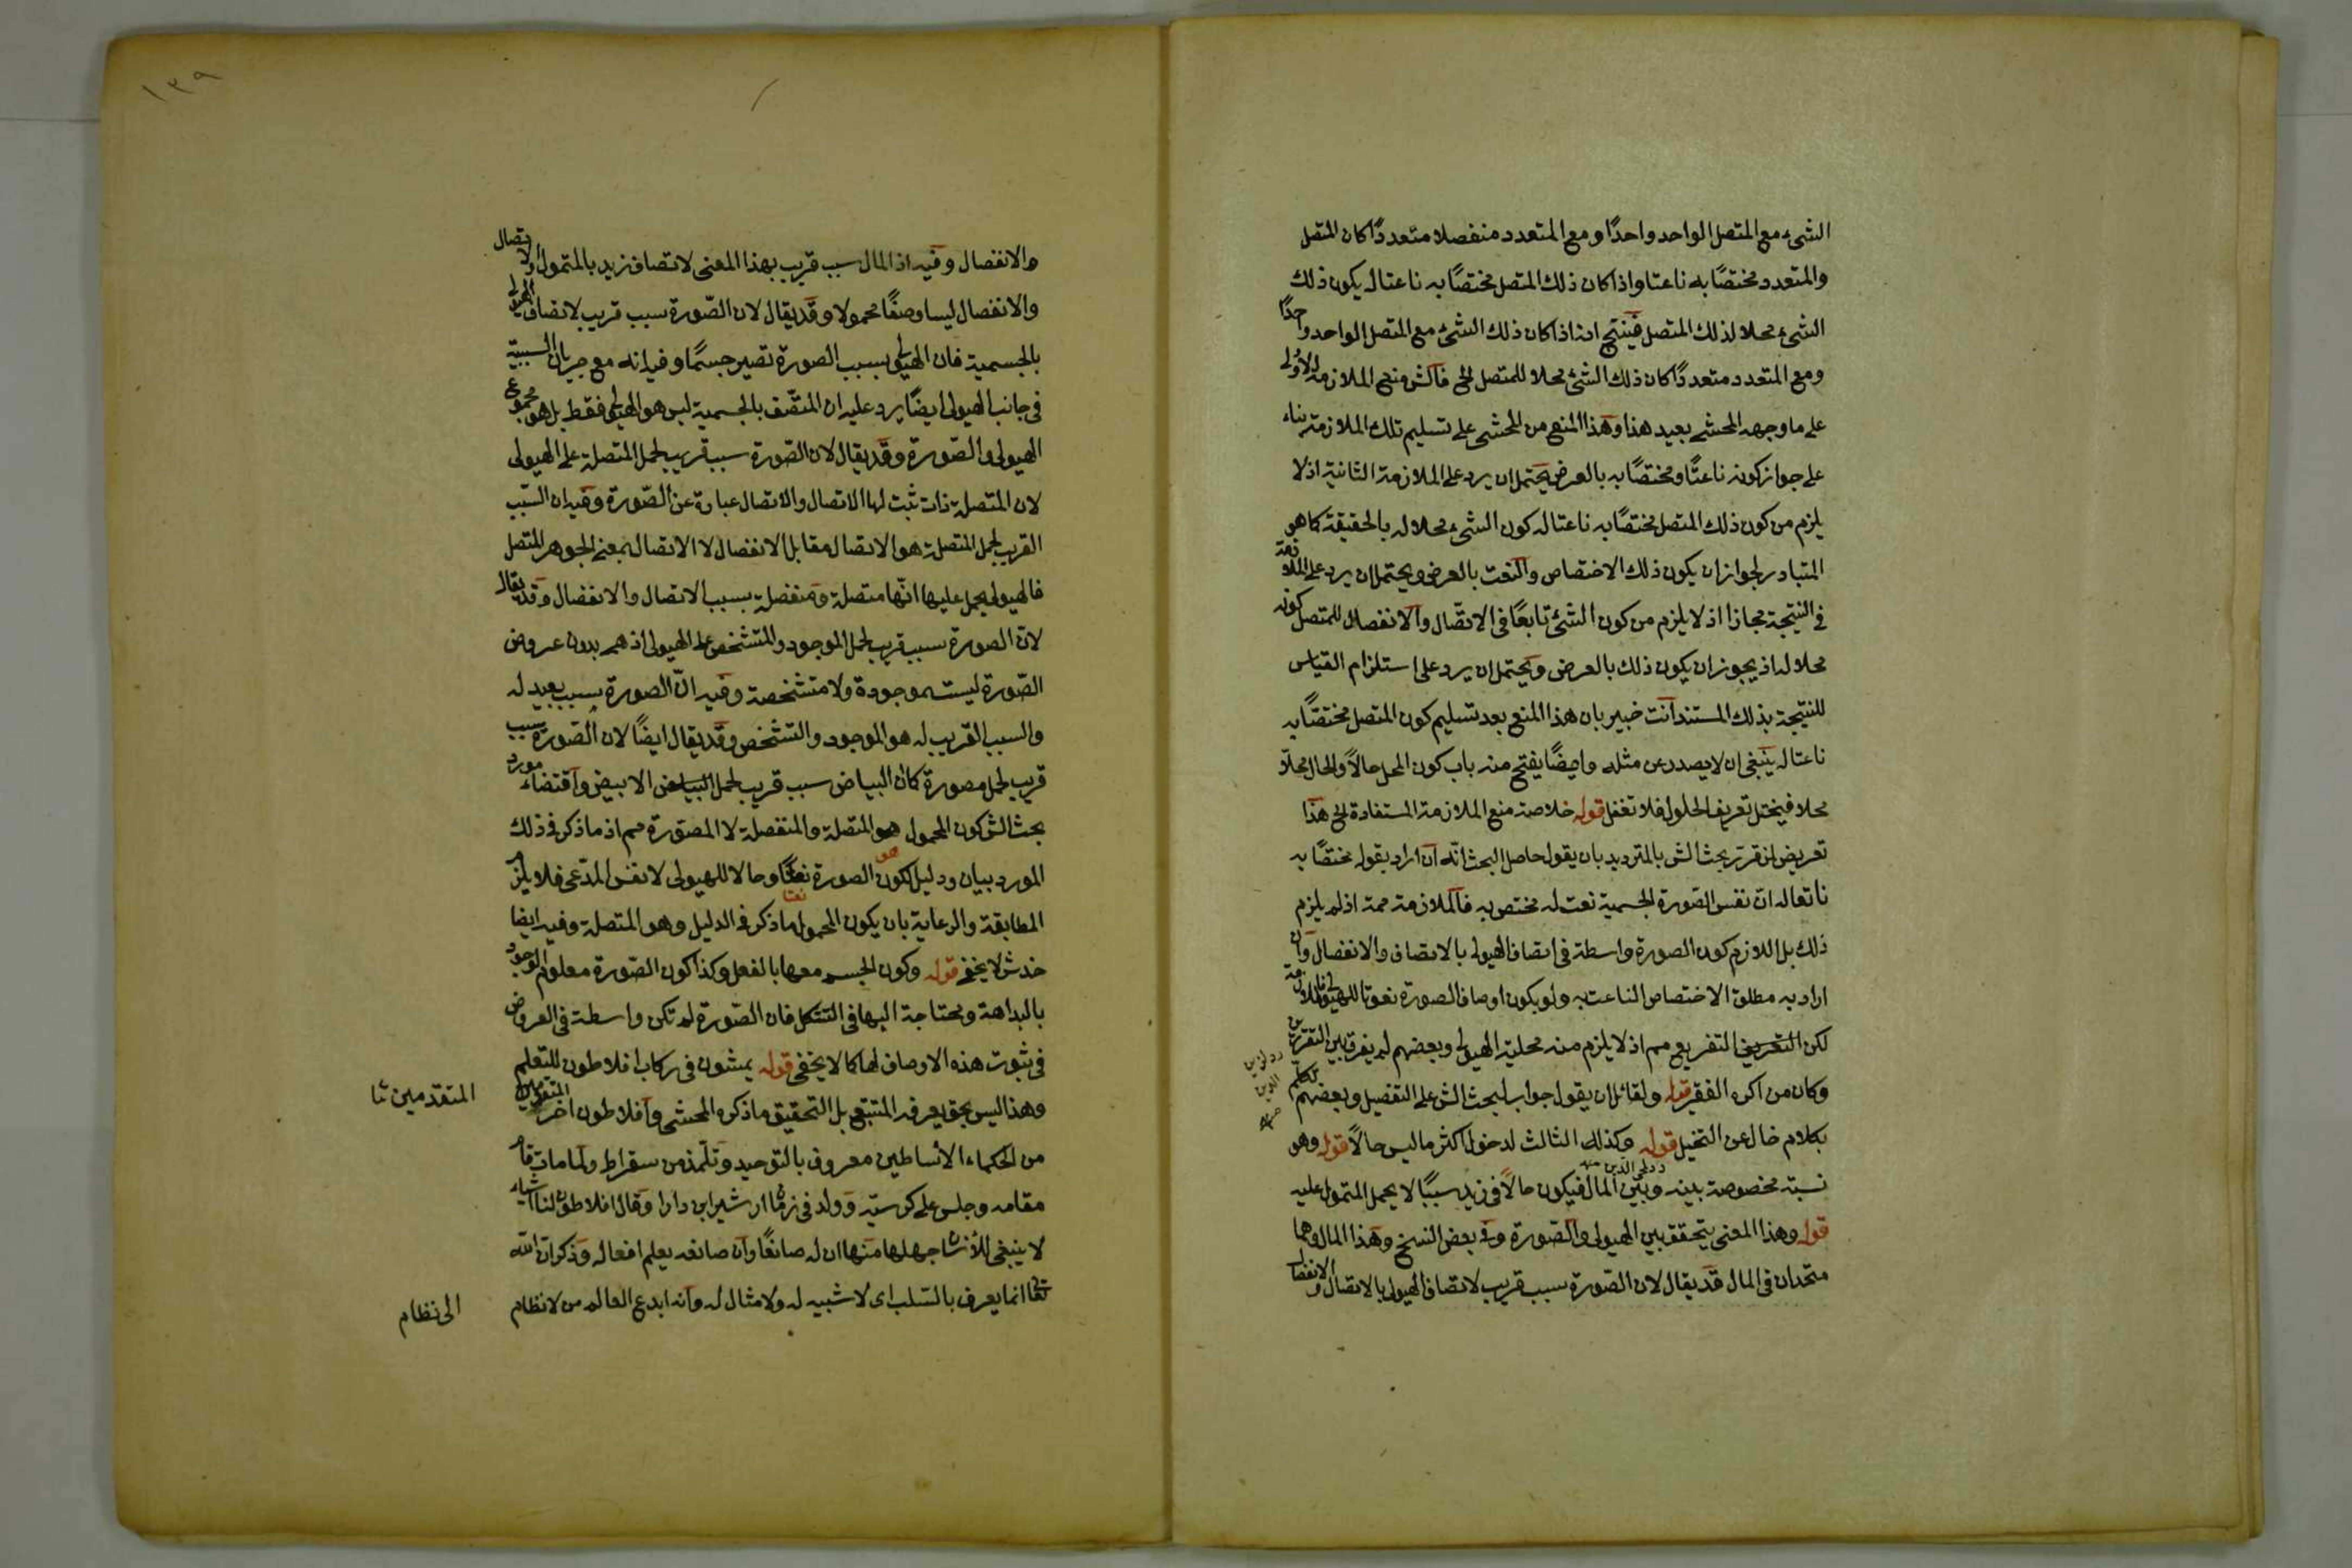 الشئ مع المتصل الواحد واحدًا ومع المتعدد منفصلا متعددًا كان المتصل
والمتعدد مختصًا به ناعتا واذا كان ذلك المتصل مختصًا به ناعتا له يكون ذلك
الشئ محلا لذلك المتصل فينتج انه اذا كان ذلك الشئ مع المتصل الواحد واحدًا
ومع المتعدد متعددًا كان ذلك الشئ محلا للمتصل الخ فالش منع الملازمة الاولى
على ما وجهه المحشي بعيد هذا وهذا المنع من المحشى على تسليم تلك الملازمة بناء
على جواز كونه ناعتًا ومختصًا به بالعرض يحتمل ان يرد على الملازمة الثانية اذ لا
يلزم من كون ذلك المتصل مختصًا به ناعتا له كون الشئ محلا له بالحقيقة كما هو
المتبادر لجواز ان يكون ذلك الاختصاص والنعت بالعرض ويحتمل ان يرد على الملازمة
في النتيجة مجازا اذ لا يلزم من كون الشئ تابعًا فى الاتصّال والانفصال للمتصل كونه
محلا له اذ يجوز ان يكون ذلك بالعرض ويحتمل ان يرد على استلزام القياس
للنتيجة بذلك المستند آنت خبير بان هذا المنع بعد تسليم كون المتصل مختصًا به
ناعتا له ينبغى ان لا يصدر عن مثله وايضًا يفتح منه باب كون المحل حالاً والحال محلاّ
محلا فيختل تعريف الحلول فلا تغفل قوله خلاصة منع الملازمة المستفادة الخ هذا
تعريض لمن قرر بحث الش بالترديد بان يقول حاصل البحث انّه ان اراد بقوله مختصًا به
ناعتا له انّ نفس الصّورة الجسمية نعت له مختص به فالملازمة ممة اذ لم يلزم
ذلك بل اللازم كون الصورة واسطة فى اتصاف الهيولى بالاتصاف والانفصال وان
اراد به مطلق الاختصاص الناعت به ولو بكون اوصاف الصورة نعوتا للهيولى فالملازمة
لكن التعريض التفريع مم اذ لا يلزم منه محلية الهيولى وبعضهم لم يفرق بين التقررين
وكان من اكره الفقر قوله ولقائل ان يقول جواب لبحث الش على التفصيل وبعضهم تكلّم
بكلام خال عن التخيل قوله وكذلك الثالث لدخول اكثر ما ليس حالاً قوله وهو
نسبة مخصوصة بينه وبين المال فيكون حالاً فى زيد سببًا لا يحمل المتمول عليه
قوله وهذا المعنى يتحقق بين الهيولى والصّورة وفى بعض النسخ وهذا المال وهما
متحدان فى المال قد يقال لان الصّورة سبب قريب لاتصاف الهيولى بالاتصال والانفصال
١٣٩
والانفصال وفيه اذ المال سبب قريب بهذا المعنى لاتصاف زيد بالمتمول والاتصال
والانفصال ليسا وصفًا محمولا وقد يقال لان الصّورة سبب قريب لاتصاف الهيولى
بالجسمية فان الهيولى بسبب الصورة تصير جسمًا وفيه انه مع جريان السببية
فى جانب الهيولى ايضًا يرد عليه ان المتصّف بالجسمية ليس هو الهيولى فقط بل هو مجموع
الهيولى والصّورة وقد يقال لان الصّورة سبب قريب لحمل المتصلة على الهيولى
لان المتصلة ذات ثبت لها الاتصال والاتصال عبارة عن الصّورة وفيه ان السّبب
القريب لحمل المتصلة هو الاتصال مقابل الانفصال لا الاتصال بمعنى الجوهر المتصل
فالهيولى يحمل عليها انّها متصلة ومنفصلة بسبب الاتصال والانفصال وقد يقال
لانّ الصورة سبب قريب لحمل الموجود والمتشخص على الهيولى اذ هى بدون عروض
الصّورة ليست موجودة ولا متشخصة وفيه انّ الصورة سبب بعيد له
والسبب القريب له هو الموجود والتشخص وقد يقال ايضًا لان الصّورة سبب
قريب لحمل مصورة كما ان البياض سبب قريب لحمل البياض الابيض واقتضاء مورد
بحث الش كون المحمول هو المتصلة والمنفصلة لا المصوّرة مم اذ ما ذكر فى ذلك
المورد بيان ودليل لكون الصورة نعتًا وحالا للهيولى لا نفس المدّعى فلا يلزم
المطابقة والرعاية بان يكون المحمول ما ذكر فى الدليل وهو المتصلة وفيه ايضا
خدش لا يخفى قوله وكون الجسم معها بالفعل وكذا كون الصّورة معلوم الوجود
بالبداهة ومحتاجة اليها فى التشكل فان الصّورة لم تكن واسطة فى العروض
فى ثبوت هذه الاوصاف لها كما لا يخفى قوله يمشون فى ركاب افلاطون للتعلم
وهذا ليس بحق يعرفه المتتبع بل التحقيق ما ذكره المحشى وافلاطون آخر المتقدمين
المتقدمين ثا
من الحكماء الأساطين معروف بالتوحيد وتلّمذ من سقراط ولما مات قام
مقامه وجلس على كرسيّه وولد فى زمان ارشير ابن دارا وقال افلاطون لنا اشياء
لا ينبغى للأنسان جهلها منها ان له صانعًا وان صانعه يعلم افعاله وذكر انّ الله
تعالى انما يعرف بالسّلب اى لا شبيه له ولا مثال له وانه ابدع العالم من لا نظام
الى نظام